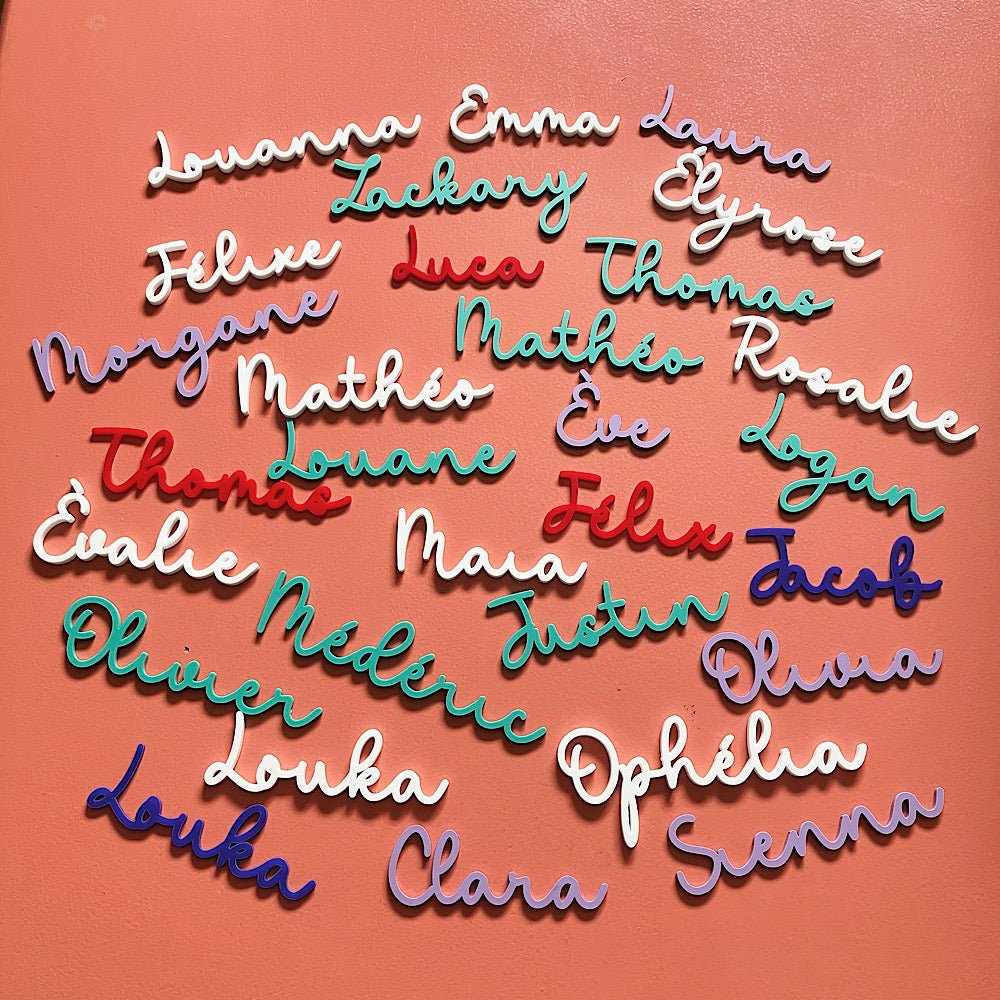 Louanna Emma Laura
Zackary Élyrose
Félixe Luca Thomas
Morgane Mathéo Rosalie
Mathéo Ève Logan
Thomas Louane Félix
Évalie Maia Jacob
Médéric Justin
Olivier Olivia
Louka Ophélia
Louka Clara Sienna